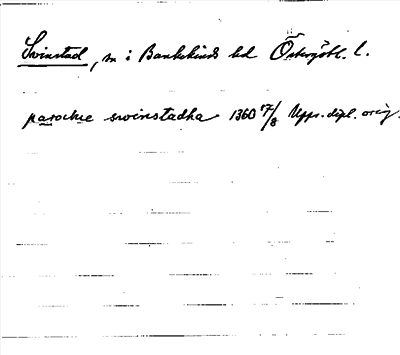 Swinstad, sn i Bankekinds hd Östergötl. l.
parochie swinstadha 1360 17/8 Upps. dipl. orig.